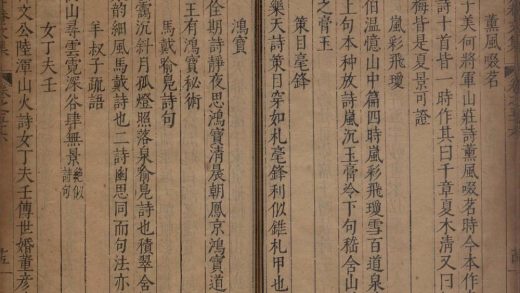 薰風啜茗
子美何將軍山莊詩薰風啜茗時今本作
詩十首皆一時作其曰千章夏木清又曰
梅皆是夏景可證
嵐彩飛瓊
伯温憶山中篇四時嵐彩飛瓊雪百道泉
上句本种放詩嵐沉玉膏冷下句嵇含山
之膏玉
策目毫鋒
樂天詩策目穿如札毫鋒利似錐札甲也
鴻寶
佺期詩靜夜思鴻寶清晨朝鳳京鴻寶道
王有鴻寶秘術
馬戴喻鳧詩句
靄沉斜月孤燈照落泉喻鳧詩也積翠含
的細風馬戴詩也二詩幽思同而句法亦
羊叔子疏語
山尋雲霓深谷肆無景絶似詩句
女丁夫壬
文公陸渾山火詩女丁夫壬傳世婚董彦